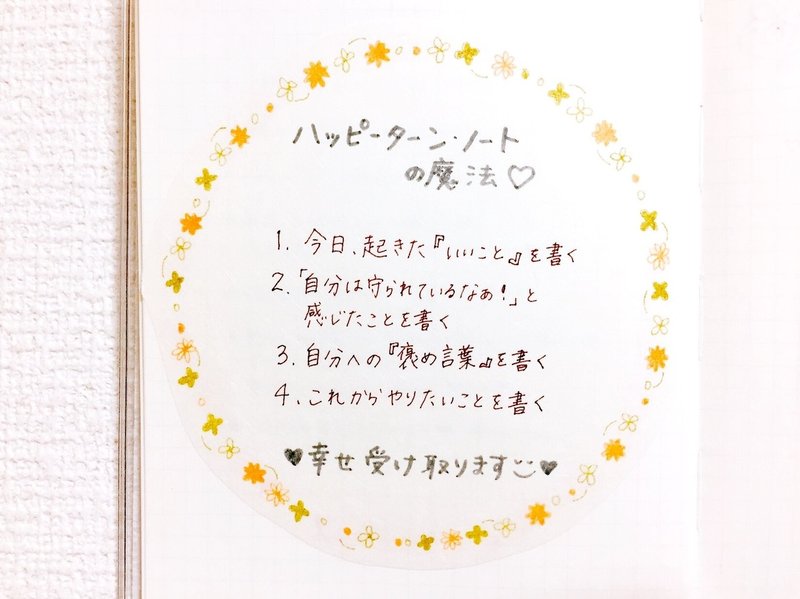 ハッピーターン・ノート
の魔法♡
1. 今日、起きた『いいこと』を書く
2.「自分は守られているなぁ!」と
感じたことを書く
3. 自分への『褒め言葉』を書く
4、これからやりたいことを書く
♥幸せ受け取ります♥